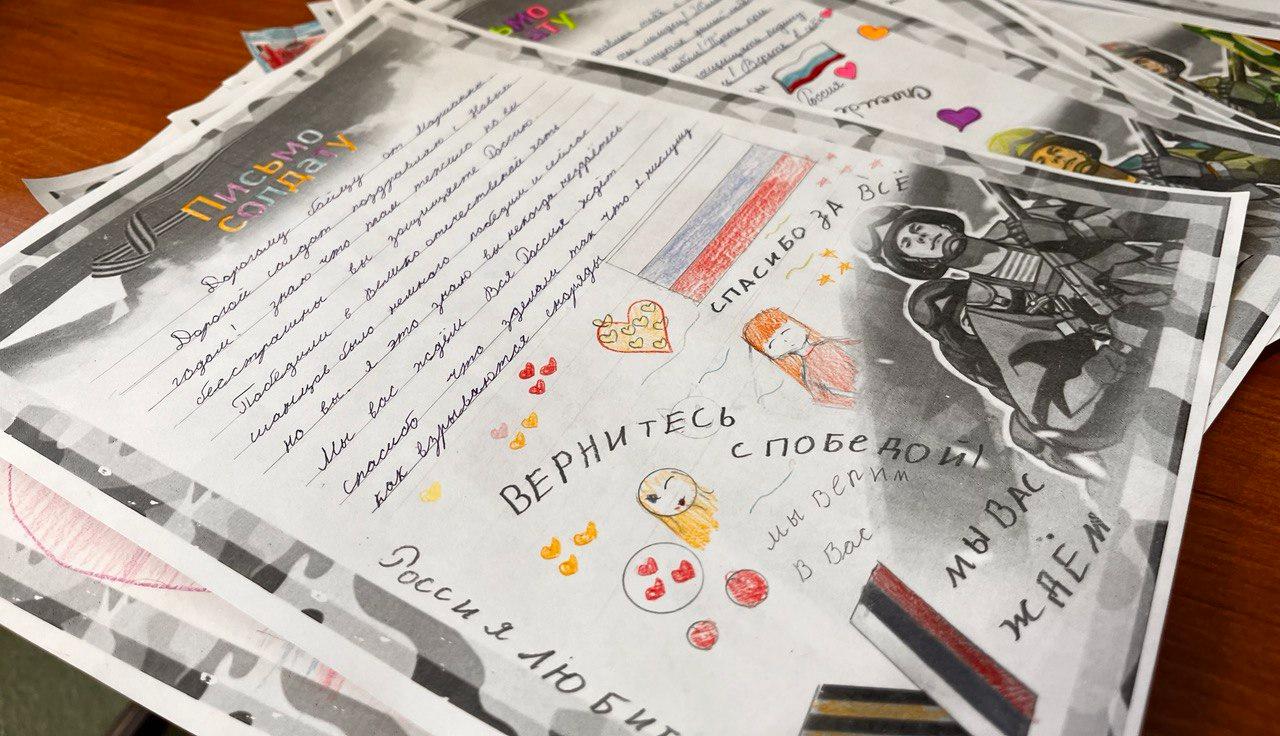 Письмо
солдату
Дорогому бойцу от Марианны
Дорогой солдат поздравляю с Новым
годом! Я знаю что там тяжело но вы
бесстрашны вы защищаете Россию.
Победили в Великоотечественной хоть
шансов было немного победили и сейчас
но вы. я это знаю вы некогда нездаётесь
Мы вас ждём Вся Россия ждёт
спасибо что зделали так что я неслышу
как взрываются снаряды
СПАСИБО ЗА ВСЁ
ВЕРНИТЕСЬ
С ПОБЕДОЙ!
МЫ ВЕРИМ
В Вас
МЫ ВАС
ЖДЁМ
Россия ЛЮБИТ
Письмо
солдату
Россия